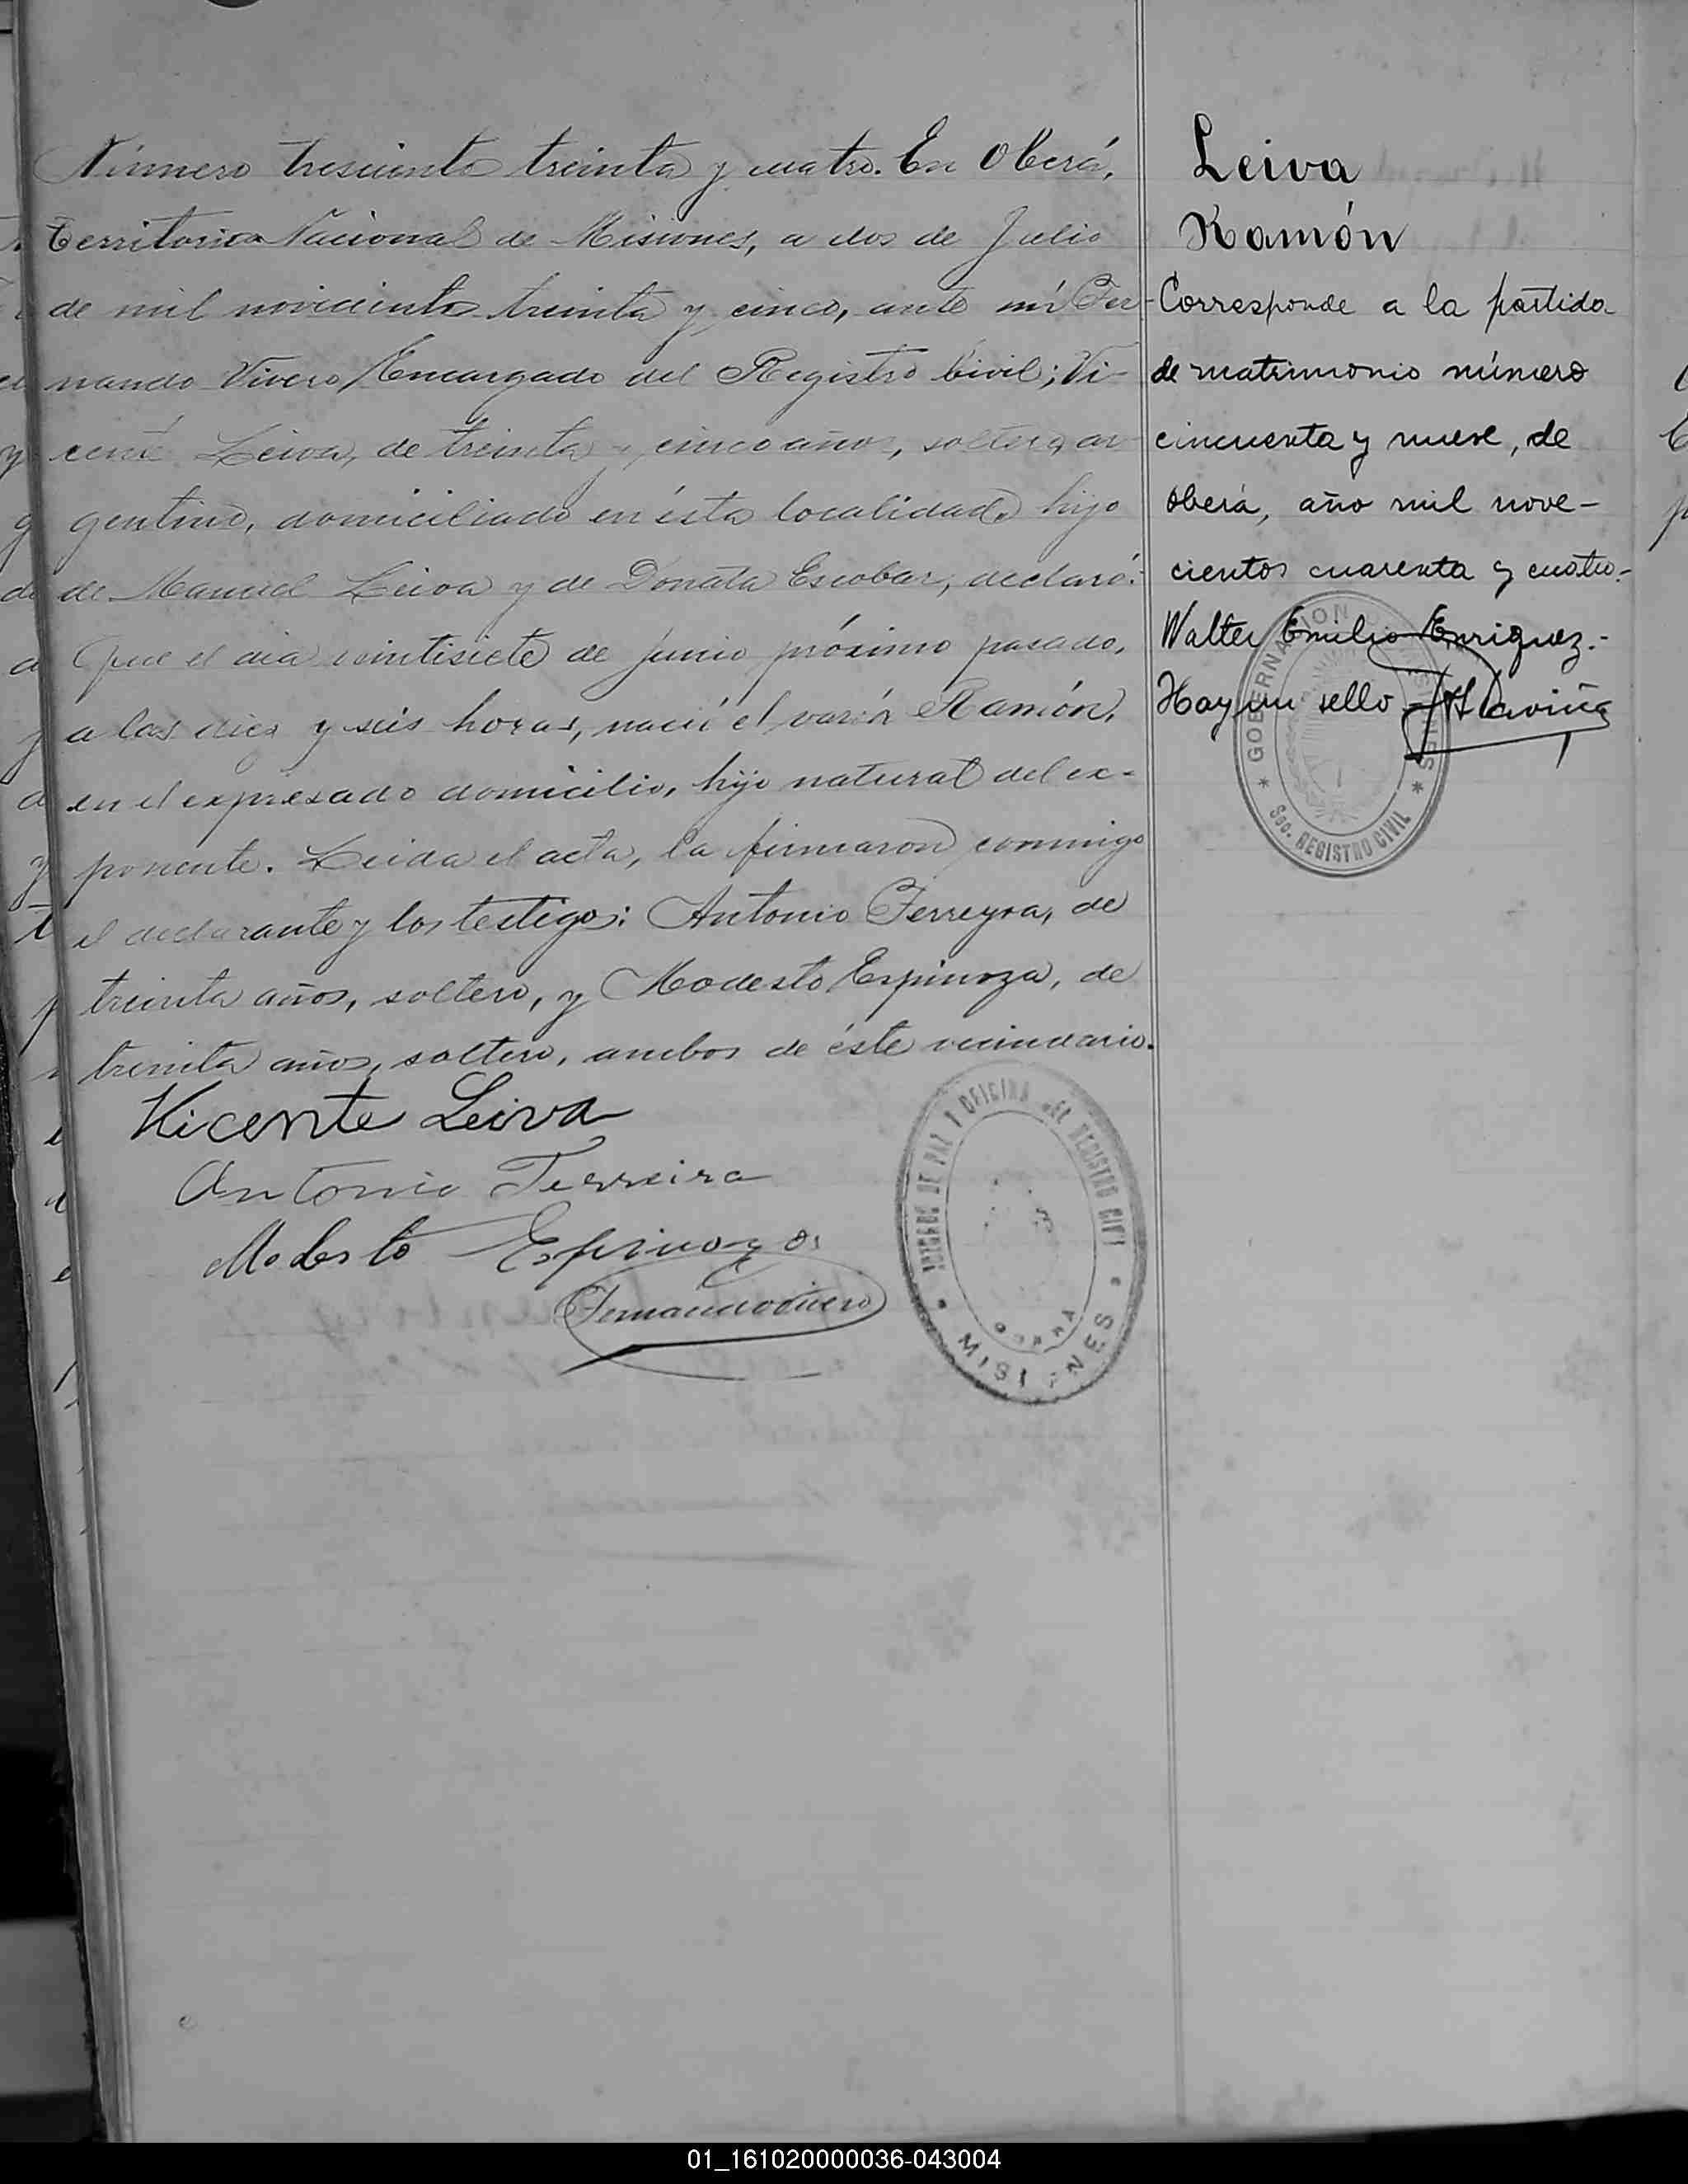 Número trescientos treinta y cuatro. En Oberá,
Territorio Nacional de Misiones, a dos de Julio
de mil novecientos treinta y cinco, ante mí Fer-
nando Vivero, Encargado del Registro Civil; Vi-
cente Leiva, de treinta y cinco años, soltero, ar-
gentino, domiciliado en ésta localidad, hijo
de Manuel Leiva y de Donata Escobar, declaró:
Que el dia veintisiete de Junio próximo pasado,
a las diez y seis horas, nació el varón Ramón,
en el expresado domicilio, hijo natural del ex-
ponente. Leida el acta, la firmaron conmigo
el declarante y los testigos: Antonio Ferreyra, de
treinta años, soltero, y Modesto Espinoza, de
treinta años, soltero, ambos de éste vecindario.
Vicente Leiva
Antonio Ferreira
Modesto Espinoza
Fernando Vivero
JUZGADO DE PAZ Y OFICINA DEL REGISTRO CIVIL
OBERA
MISIONES
Leiva
Ramón
Corresponde a la partida
de matrimonio número
cincuenta y nueve, de
Oberá, año mil nove-
cientos cuarenta y cuatro.-
Walter Emilio Enriquez.-
Hay un sello
GOBERNACION
MISIONES
Sec. REGISTRO CIVIL
01_161020000036-043004